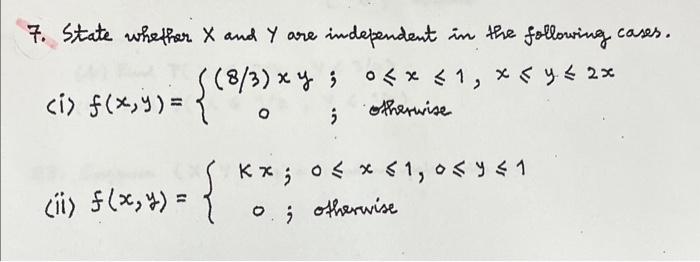 7. State whether X and Y are independent in the following cases.
(i) f(x,y) = { (8/3) x y ; 0 ≤ x ≤ 1, x ≤ y ≤ 2x
0 ; otherwise
(ii) f(x,y) = { Kx ; 0 ≤ x ≤ 1, 0 ≤ y ≤ 1
0 ; otherwise